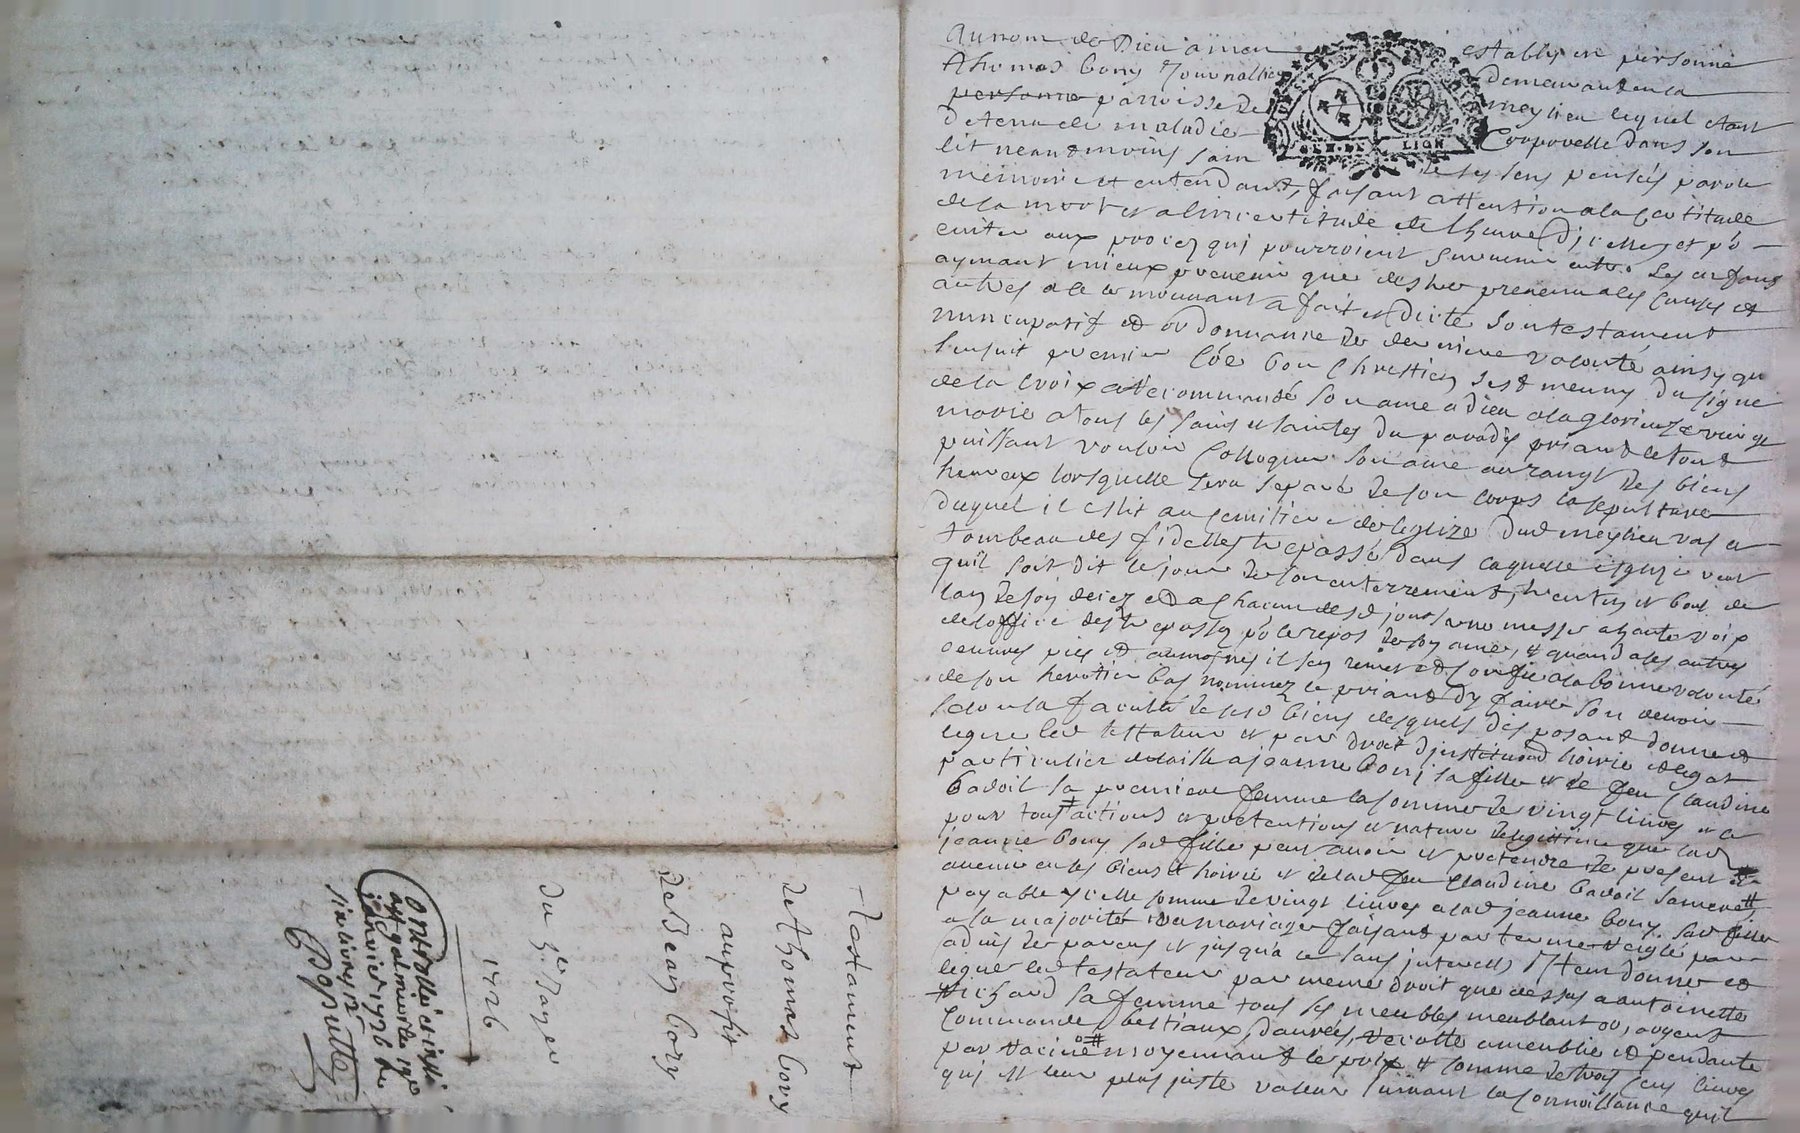 au nom de Dieu amen establi en personne
Thomas bory Journallier demeurant en la
personne parroisse de meylieu lequel estant
detenu de maladie Corporelle dans son
lit neantmoins sain de ses sens pensés parole
memoire et entendant, faisant attention a la Certitude
de la mort et a lincertitude de lheure dicelle, et po
eviter aux procez qui pourroient survenir entre ses enfans
aymant mieux prevenir que destre prevenu a les causes et
autres a ce le mouvant a fait et dicté son testament
nuncupatif et ordonnance de derniere volonté ainsy que
sensuit premier Coe bon Chrestien sest meuny du signe
de la croix a recommandé son ame a dieu a la glorieuze vierge
marie a tous les saints et saintes du paradis priant le tout
puissant vouloir Colloquer son ame au rangt des biens
heureux lorsquelle sera separé de son corps la sepulture
duquel il eslit au cemitiere de leglize dud meylieu vas et
tombeau des fidelles trepassé dans laquelle eglize veut
quil soit dit le jour de son enterrement, trentin et bout de
lan de son decez et a chacun desd jours une messe a haute voix
de loffice des trepassez po le repos de son ame, et quand a ses autres
oeuvres pies et aumosnes il sen remet et confie a la bonne volonté
de son heretier bas nommez le priant dy faire son devoir
selon la faculté de ses biens desquels disposant donne et
legue led testateur et par droit dinstitution hoirie et legat
particulier delaisse a jeanne bory sa fille et de feu Claudine
badoil sa premiere femme la somme de vingt livres et ce
pour tous actions et pretentions et nature de legitime que lad
jeanne bory sad fille peut avoir et pretendre de present
avenir en les biens et hoirie et de lad feu Claudine badoil sa mere
payable ycelle somme de vingt livres a lad jeanne bory sad fille
a la majorité ou mariage faisant par terme reiglé par
advis de parens et jusqua ce sans interests Item donne et
legue led testateur par meme droit que dessus a antoinette
richard sa femme tous ses meubles meublant
Commande, bestiaux, danrées, recolte ameublie et pendante
par racine moyennant le prix et somme de trois cens livres
qui est leur plus juste valeur suivant la connoissance quil
Testament
de thomas bory
au profit
de Jean bory
Du 3e Janver
1726
Controllé et insinué
a st galmier le
janvier 1726